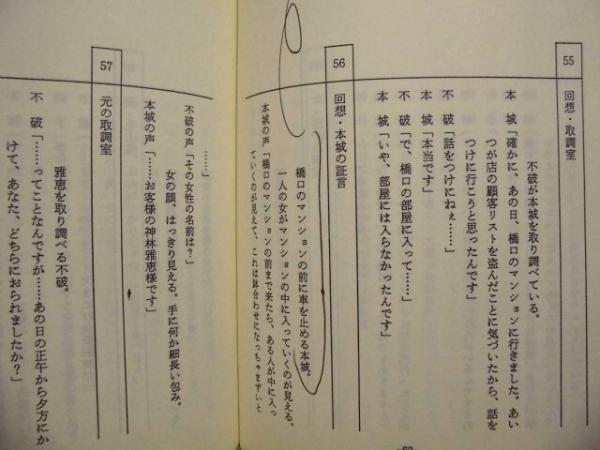 55
回想・取調室
不破が本城を取り調べている。
本　城「確かに、あの日、橋口のマンションに行きました。あい
つが店の顧客リストを盗んだことに気づいたから、話を
つけに行こうと思ったんです」
不　破「話をつけにねぇ……」
本　城「本当です」
不　破「で、橋口の部屋に入って……」
本　城「いや、部屋には入らなかったんです」
56
回想・本城の証言
橋口のマンションの前に車を止める本城。
一人の女がマンションの中に入っていくのが見える。
本城の声「橋口のマンションの前まで来たら、ある人が中に入っ
ていくのが見えて、これは鉢合わせになっちゃまずいと
……」
不破の声「その女性の名前は？」
女の顔、はっきり見える。手に何か細長い包み。
本城の声「……お客様の神林雅恵様です」
57
元の取調室
雅恵を取り調べる不破。
不　破「……ってことなんですが……あの日の正午から夕方にか
けて、あなた、どちらにおられましたか？」